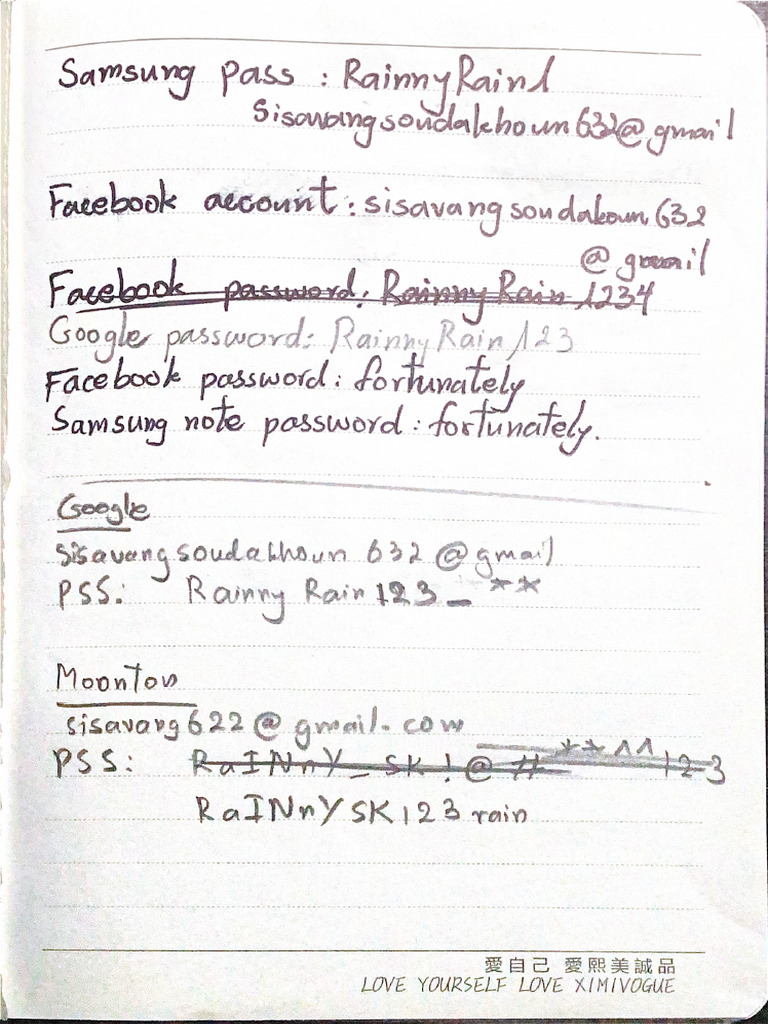 Samsung pass : RainnyRain1
Sisavangsoudakhoun632@gmail
Facebook account : sisavangsoudakoun632
@gmail
Facebook password: RainnyRain1234
Google password: RainnyRain123
Facebook password: fortunately
Samsung note password: fortunately.
Google
Sisavangsoudakhoun632@gmail
PSS: Rainny Rain 123_**
Moonton
sisavang622@gmail.com
PSS: RaINnY_SK!@#**^^123
RaINnYSK123rain
愛自己 愛熙美誠品
LOVE YOURSELF LOVE XIMIVOGUE